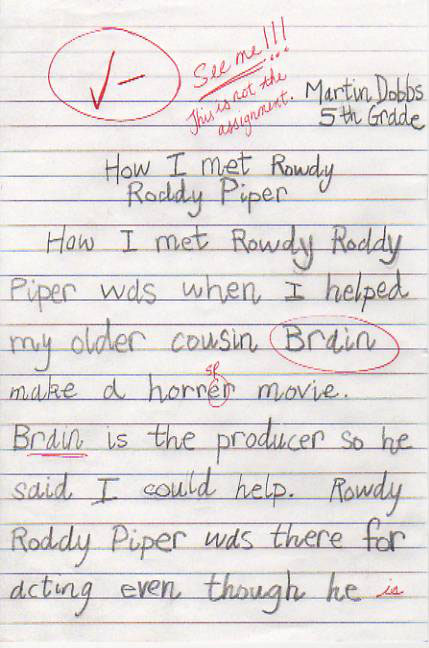 ✓-
See me!!!
This is not the
assignment.
Martin Dobbs
5th Grade
How I met Rowdy
Roddy Piper
How I met Rowdy Roddy
Piper was when I helped
my older cousin Brain
sp
make a horrer movie.
Brain is the producer so he
said I could help. Rowdy
Roddy Piper was there for
acting even though he is